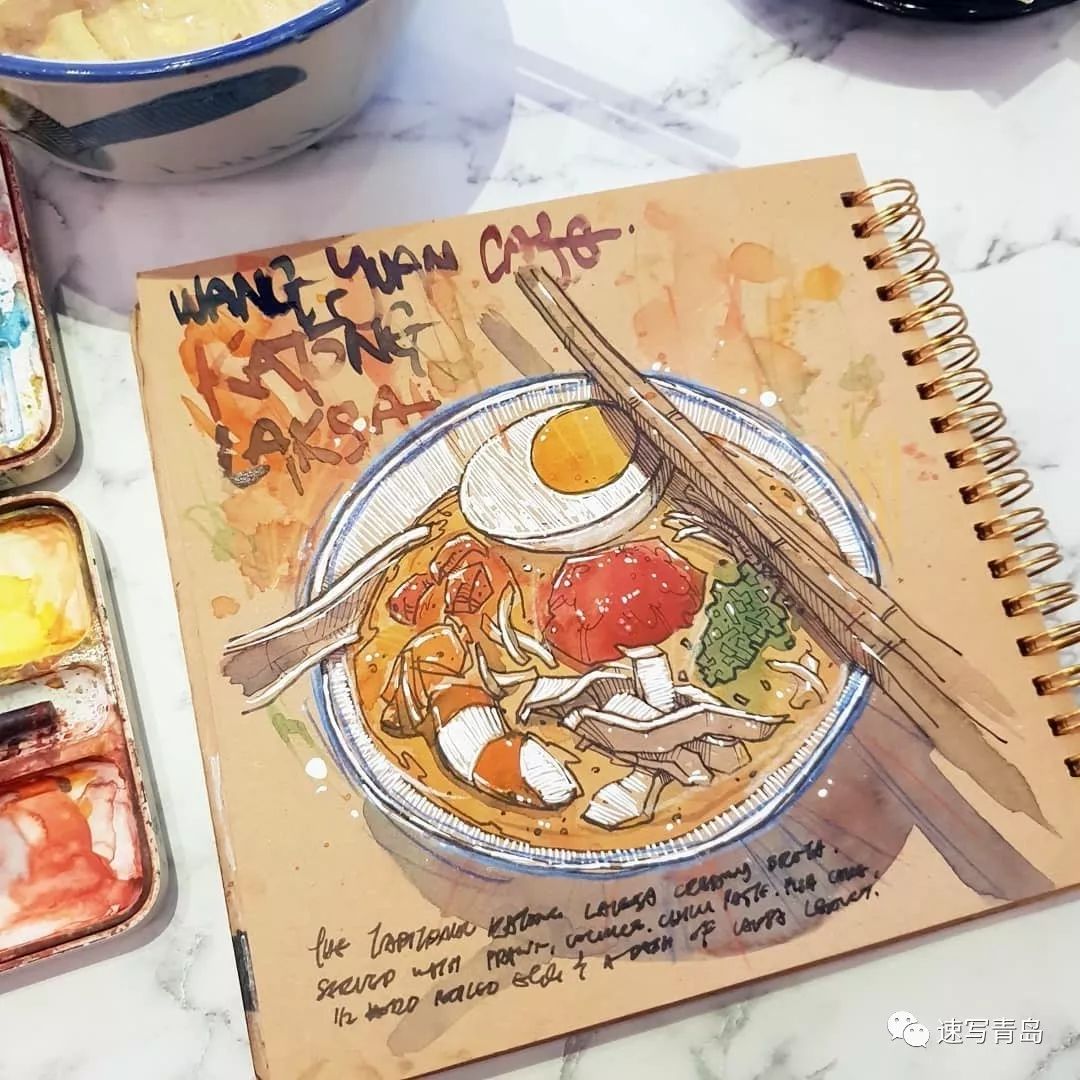 WANG YUAN CAFE.
KATONG
LAKSA
THE KATONG LAKSA CREAMY BROTH.
SERVED WITH PRAWN, COCKLE, CHILLI PASTE, FISH CAKE,
1/2 HARD BOILED EGG & A DASH OF LAKSA LEAVES.
速写青岛